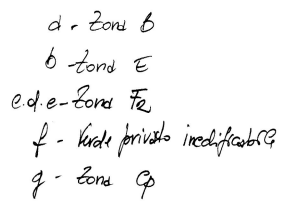 a - Zona B
b - Zona E
c.d.e - Zona F2
f - Verde privato inedificabile
g - Zona Cp